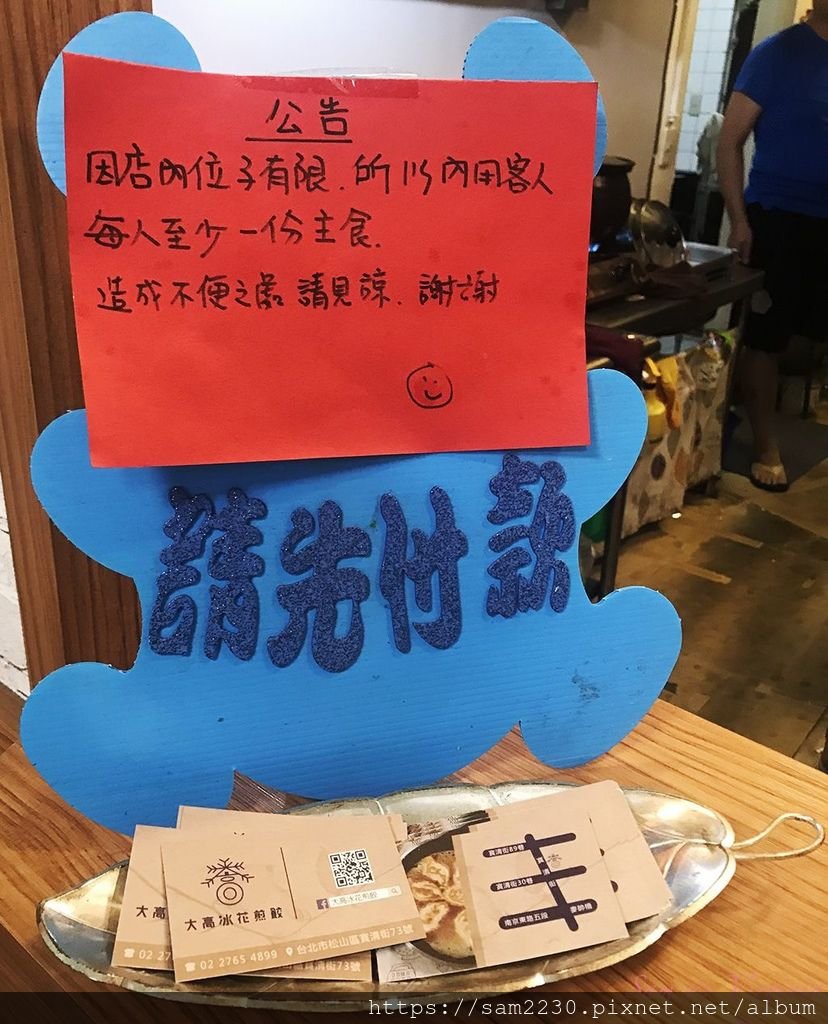 公告
因店內位子有限.所以內用客人
每人至少一份主食.
造成不便之處 請見諒.謝謝
請先付款
大高冰花煎餃
大高冰花煎餃
02 2765 4899
台北市松山區寶清街73號
大高
02 27
寶清街89巷
寶清街
寶清街30巷
南京東路五段
麥帥橋
https://sam2230.pixnet.net/album